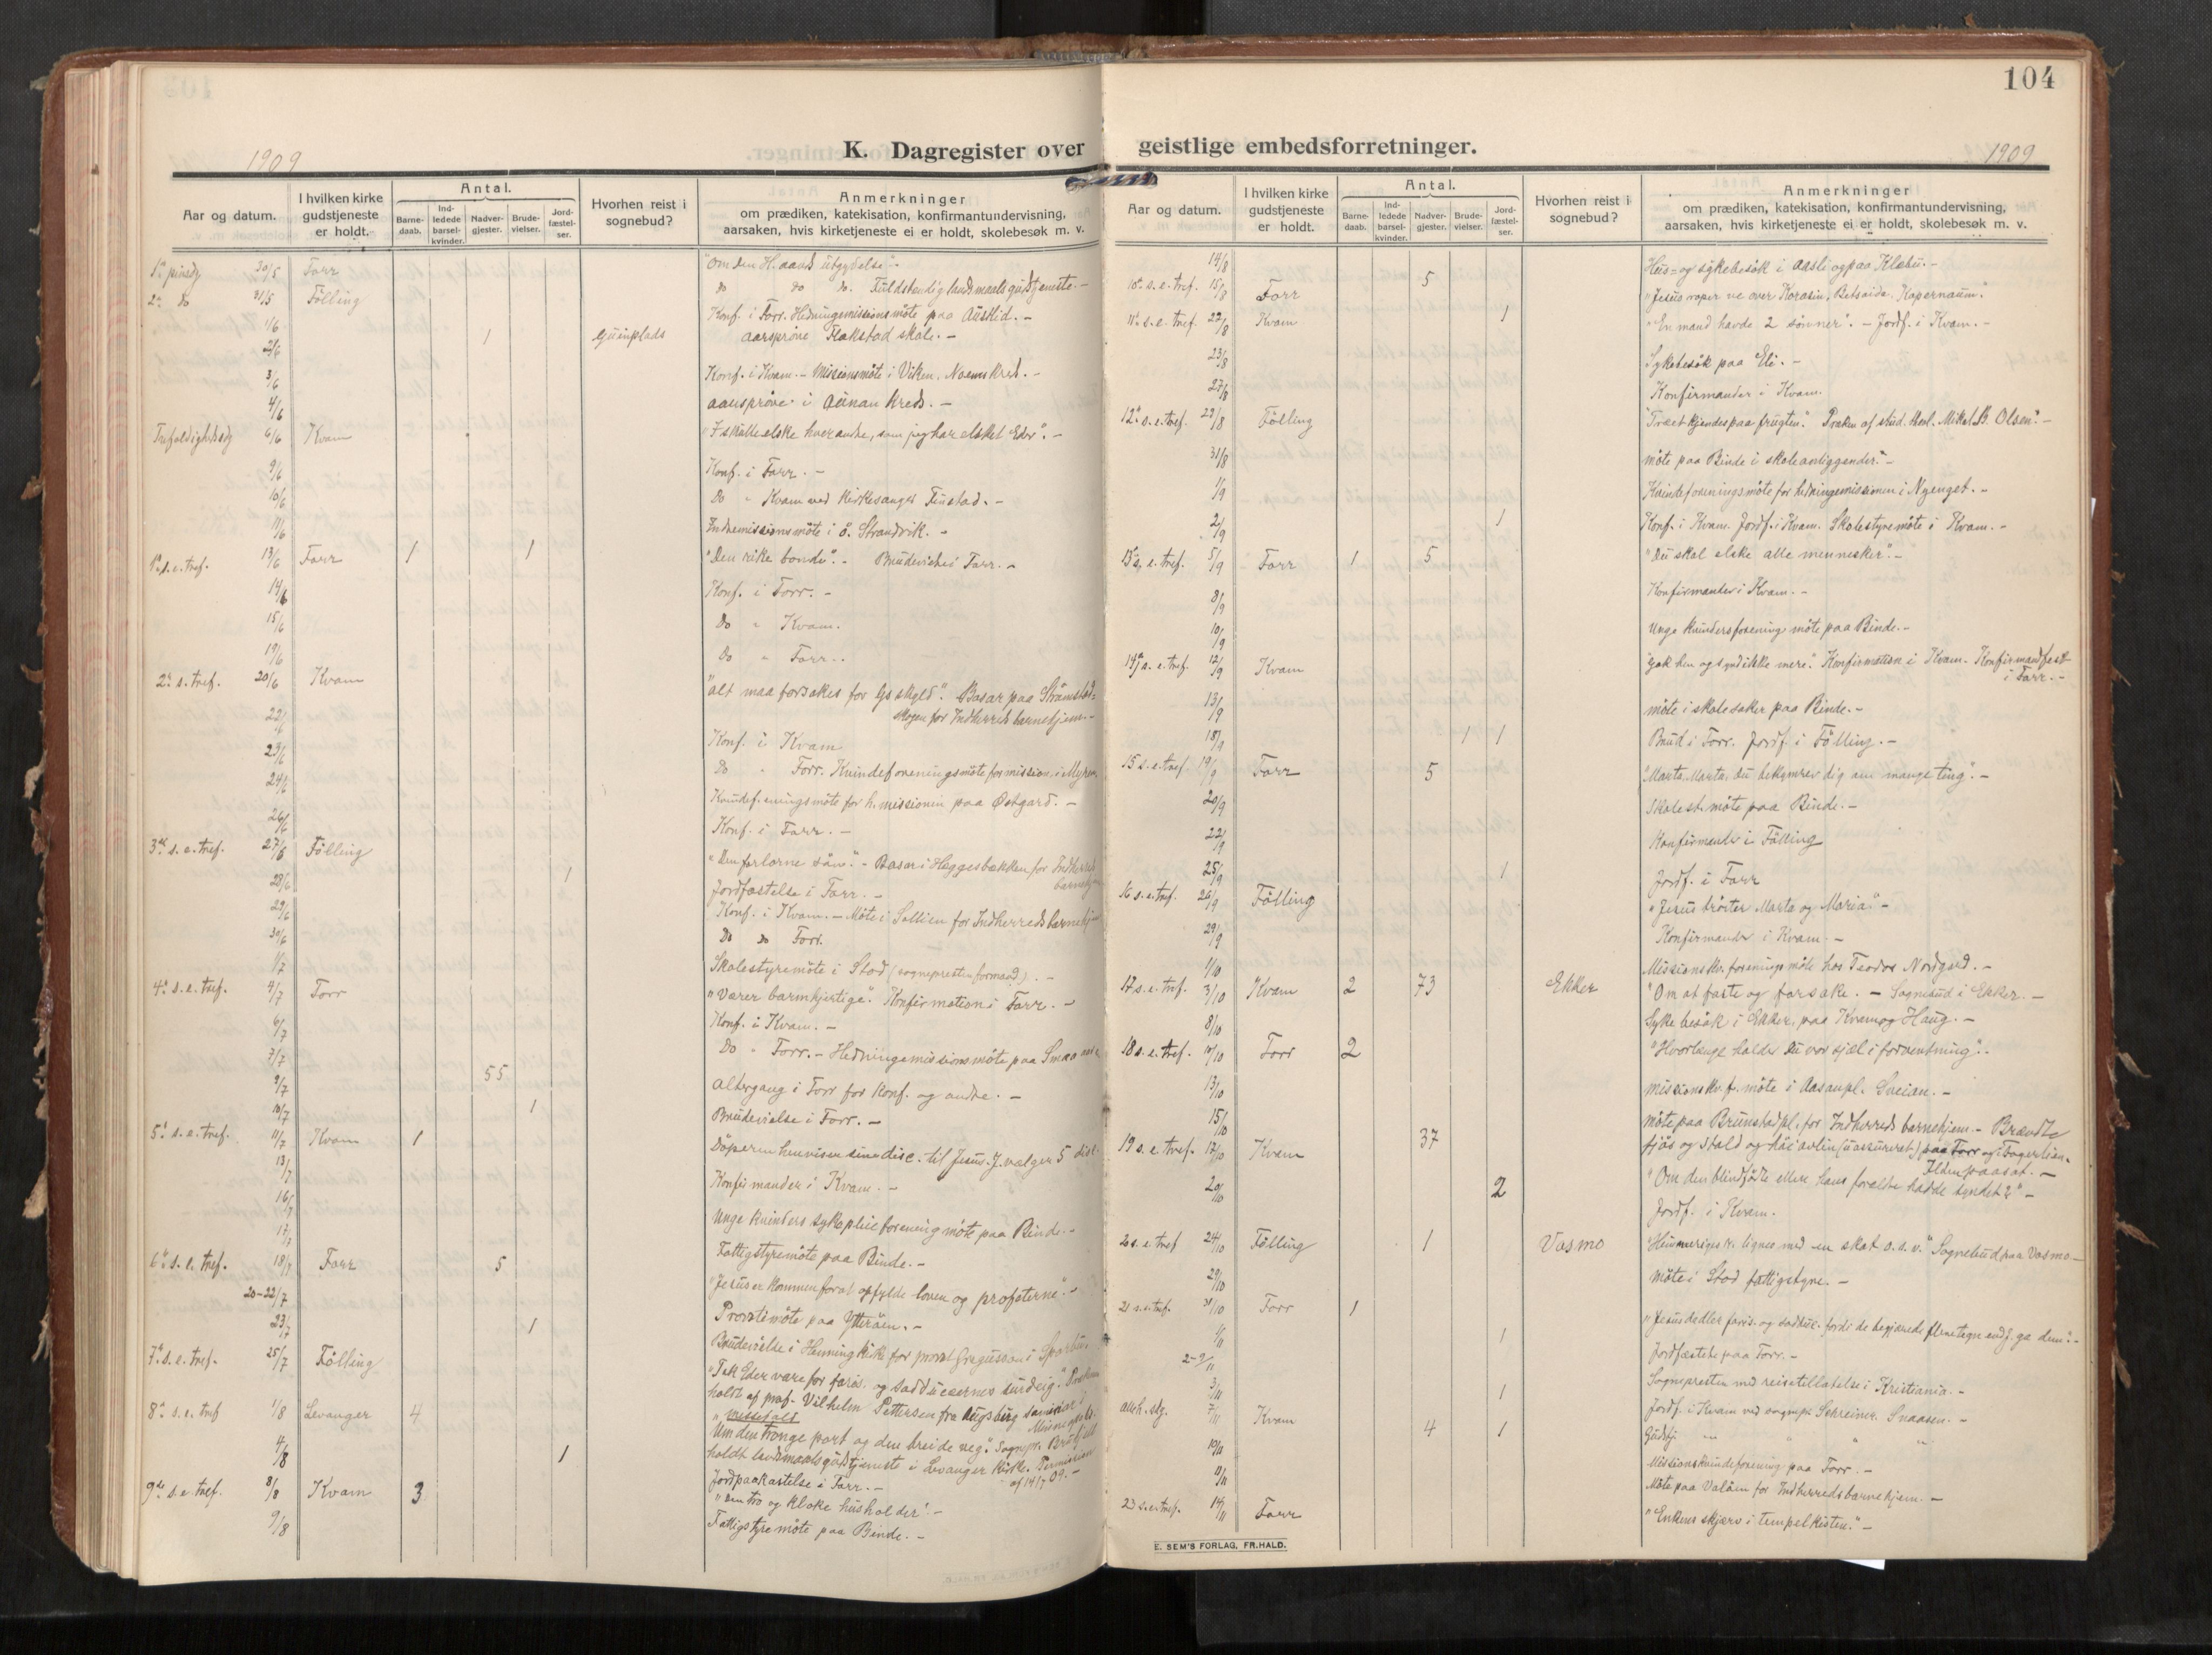 104
K. Dagregister over geistlige embedsforretninger.
1909
1909
Aar og datum.
I hvilken kirke gudstjeneste er holdt.
Antal.
Barne-daab.
Ind-ledede barsel-kvinder.
Nadver-gjester.
Brude-vielser.
Jord-fæstel-ser.
Hvorhen reist i sognebud?
Anmerkninger
om prædiken, katekisation, konfirmantundervisning,
aarsaken, hvis kirketjeneste ei er holdt, skolebesøk m. v.
30/5 Forr "Om den H. aands utgydelse".
2. do 31/5 Fölling do do do. Fuldstendig landsmaals gudstjeneste.-
1/6 Konf. i Forr. Hedningemissionsmöte paa Austlid.-
2/6 1 aarspröve Flakstad skole.-
3/6 Konf. i Kvam.- Missionsmöte i Viken,
4/6 aarspröve i Aunan kreds.-
6/6 Kvam "I skulle elske hverandre, som jeg har elsket Eder".-
9/6 Konf. i Forr.-
10/6 Do " Kvam ved kirkesanger Finstad.-
11/6 Indremissionsmöte i ö. Strandvik.-
1. s. e. tref. 13/6 Forr 1 1 "Den rike bonde".- Brudevielse i Forr.-
14/6 Konf. i Forr.-
15/6 Do " Kvam.
19/6 Do " Forr..
2. s. e. tref. 20/6 Kvam "alt maa forsakes for Gs skyld". Basar paa
skogen for Indherreds barnehjem.-
22/6 Konf. i Kvam
23/6 Do " Forr. Kvindeforeningsmöte for mission. i Myren.
24/6 möte for h. missionen paa Østgard.-
26/6 Konf. i Forr.-
3. s. e. tref. 27/6 Fölling "Den forlorne sön".- Basar i Heggesbakken for Indherreds
28/6 1 Jordfæstelse i Forr.-
29/6 Konf. i Kvam.- Möte i Sollien for Indherreds barnehjem
30/6 Do do Forr.
1/7 Skolestyremöte i Stod (sognepresten formand).-
4. s. e. tref. 4/7 Forr "Værer barmhjertige". Konfirmation i Forr.-
6/7 Konf. i Kvam.-
7/7 Do " Forr.- Hedningemissionsmöte paa
9/7 55 altergang i Forr for konf. og andre.-
10/7 1 Brudevielse i Forr.-
5. s. e. tref. 11/7 Kvam 1 Döperen henviser sine disc. til Jesus. J. vælger 5 disc.
13/7 Konfirmander i Kvam.-
16/7 Unge kvinders sykepleieforening möte paa Binde.-
17/7 Fattigstyremöte paa Binde.-
6. s. e. tref. 18/7 Forr 5 "Jesus er kommen forat opfylde loven og profeterne".-
20-22/7 Provstimöte paa Ytteröen.-
23/7 1 Brudevielse i Henning kirke for provst Gregusson i Sparbu.
7. s. e. tref. 25/7 Fölling "Tak Eder vare for faris. og sadducæernes surdeig".
holdt af prof. Vilhelm Pettersen fra Augsburg seminar
8. s. e. tref 1/8 Levanger 4 "Om den trange port og den breide veg". Sognepr.
holdt landsmaalsgudstjeneste i Levanger kirke. Permission
af 14/7 09.-
4/8 1 Jordpaakastelse i Forr.-
9de s. e. tref. 8/8 Kvam 3 "Den tro og kloke husholder".-
9/8 Fattigstyremöte paa Binde.-
14/8 Hus- og sykebesök i Aasli og paa Klæbu.-
10. s. e. tref. 15/8 Forr 5 "Jesus roper ve over Korasin, Betsaida, Kapernaum".
11. s. e. tref 22/8 Kvam 1 "En mand havde 2 sönner".- Jordf. i Kvam.-
23/8 Sykebesök paa Eli.-
27/8 Konfirmander i Kvam.
12. s. e. tref. 29/8 Fölling "Træet kjendes paa frugten". Præken af stud. theol. Mikal B. Olsen".-
31/8 möte paa Binde i skoleanliggender".-
1/9 Kvindeforeningsmöte for hedningemissionen i Nyenget.-
2/9 1 Konf. i Kvam. Jordf. i Kvam. Skolestyremöte i Kvam.-
13. s. e. tref. 5/9 Forr 1 5 "Du skal elske alle mennesker".-
8/9 Konfirmanter i Kvam.-
10/9 Unge kvindersforening möte paa Binde.-
14. s. e. tref. 12/9 Kvam "Gak hen og synd ikke mere". Konfirmation i Kvam. Konfirmandfest
i Forr.-
13/9 möte i skolesaker paa Binde.-
18/9 1 1 Brud i Forr. Jordf. i Fölling.-
15 s. e. tref. 19/9 Forr 5 "Marta, Marta, du bekymrer dig om mange ting".-
20/9 Skolest. möte paa Binde.-
22/9 Konfirmander i Fölling
25/9 1 Jordf. i Forr
16 s. e. tref. 26/9 Fölling "Jesus tröster Marta og Maria".-
29/9 Konfirmander i Kvam.-
1/10 Missionskv. forenings möte hos Teodor Nordgard.-
17 s. e. tref. 3/10 Kvam 2 73 Ekker "Om at faste og forsake.- Sognebud i Ekker.-
8/10 Sykebesök i Ekker, paa Kvam og Haug.-
18 s. e. tref. 10/10 Forr 2 "Hvorlenge holder du vor sjæl i forventning".
13/10 missionskv. f. möte i Aasanpl. Sveian.-
15/10 möte paa Brunstadpl. for Indherreds barnehjem.- Brændte
fjös og stald og hus avlin (uassureret) paa Forr og i Fagerlian.
Ilden paasat.-
19 s. e. tref. 17/10 Kvam 37 "Om den blindfödte eller hans forældre hadde syndet?"-
20/10 2 Jordf. i Kvam.
20 s. e. tref 24/10 Fölling 1 Vasmo "Himmeriges r. lignes med en skat o. s. v." Sognebud paa Vasmo-
29/10 möte i Stod fattigstyre.-
21 s. e. tref. 31/10 Forr 1 "Jesus dadler faris. og saddus. fordi de begjærede
1/11 1 Jordfæstelse paa Forr.-
2-9/11 Sognepresten med reisetillatelse i Kristiania.-
3/11 1 Jordf. i Kvam ved sognepr. Schreiner, Snaasen.-
alleh. dg. 7/11 Kvam 4 1 Gudstj. " " "
10/11 Missionskvindeforening paa Forr.-
11/11 Möte paa Valöen for Indherreds barnehjem.-
23 s. e. tref. 14/11 Forr "Enkens skjærv i tempelkisten".-
E. SEM'S FORLAG, FR.HALD.